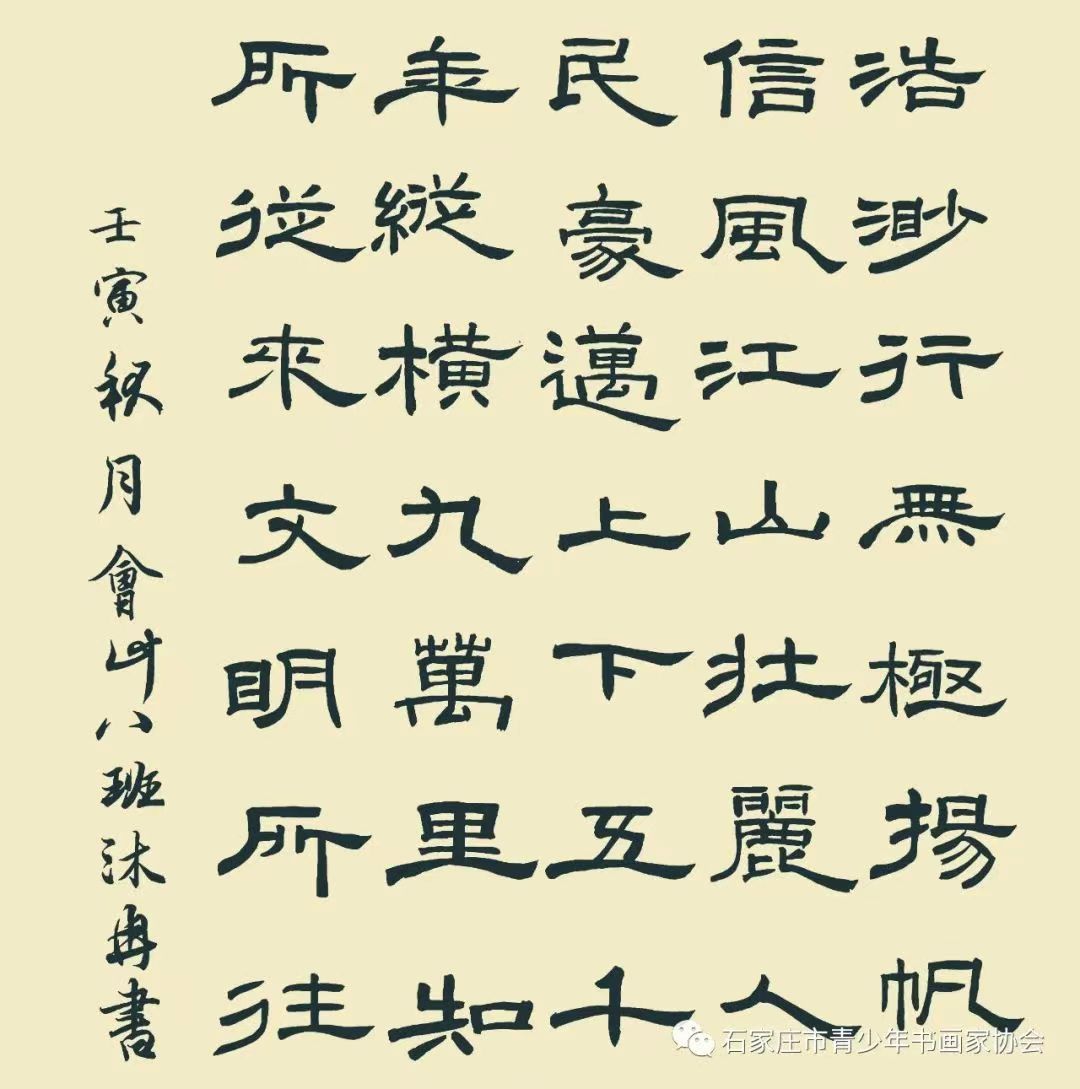 浩渺行無極揚帆
信風江山壯麗人
民豪邁上下五千
年縱橫九萬里知
所從來文明所往
壬寅秋月會艸八班沐冉書
石家庄市青少年书画家协会